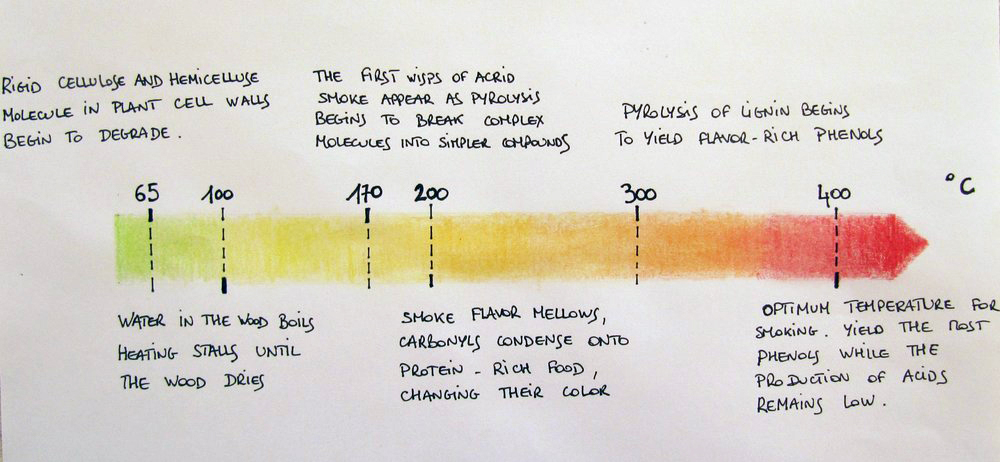 RIGID CELLULOSE AND HEMICELLUSE
MOLECULE IN PLANT CELL WALLS
BEGIN TO DEGRADE.
THE FIRST WISPS OF ACRID
SMOKE APPEAR AS PYROLYSIS
BEGINS TO BREAK COMPLEX
MOLECULES INTO SIMPLER COMPOUNDS
PYROLYSIS OF LIGNIN BEGINS
TO YIELD FLAVOR-RICH PHENOLS
65 100 170 200 300 400 °C
WATER IN THE WOOD BOILS
HEATING STALLS UNTIL
THE WOOD DRIES
SMOKE FLAVOR MELLOWS,
CARBONYLS CONDENSE ONTO
PROTEIN-RICH FOOD,
CHANGING THEIR COLOR
OPTIMUM TEMPERATURE FOR
SMOKING. YIELD THE MOST
PHENOLS WHILE THE
PRODUCTION OF ACIDS
REMAINS LOW.